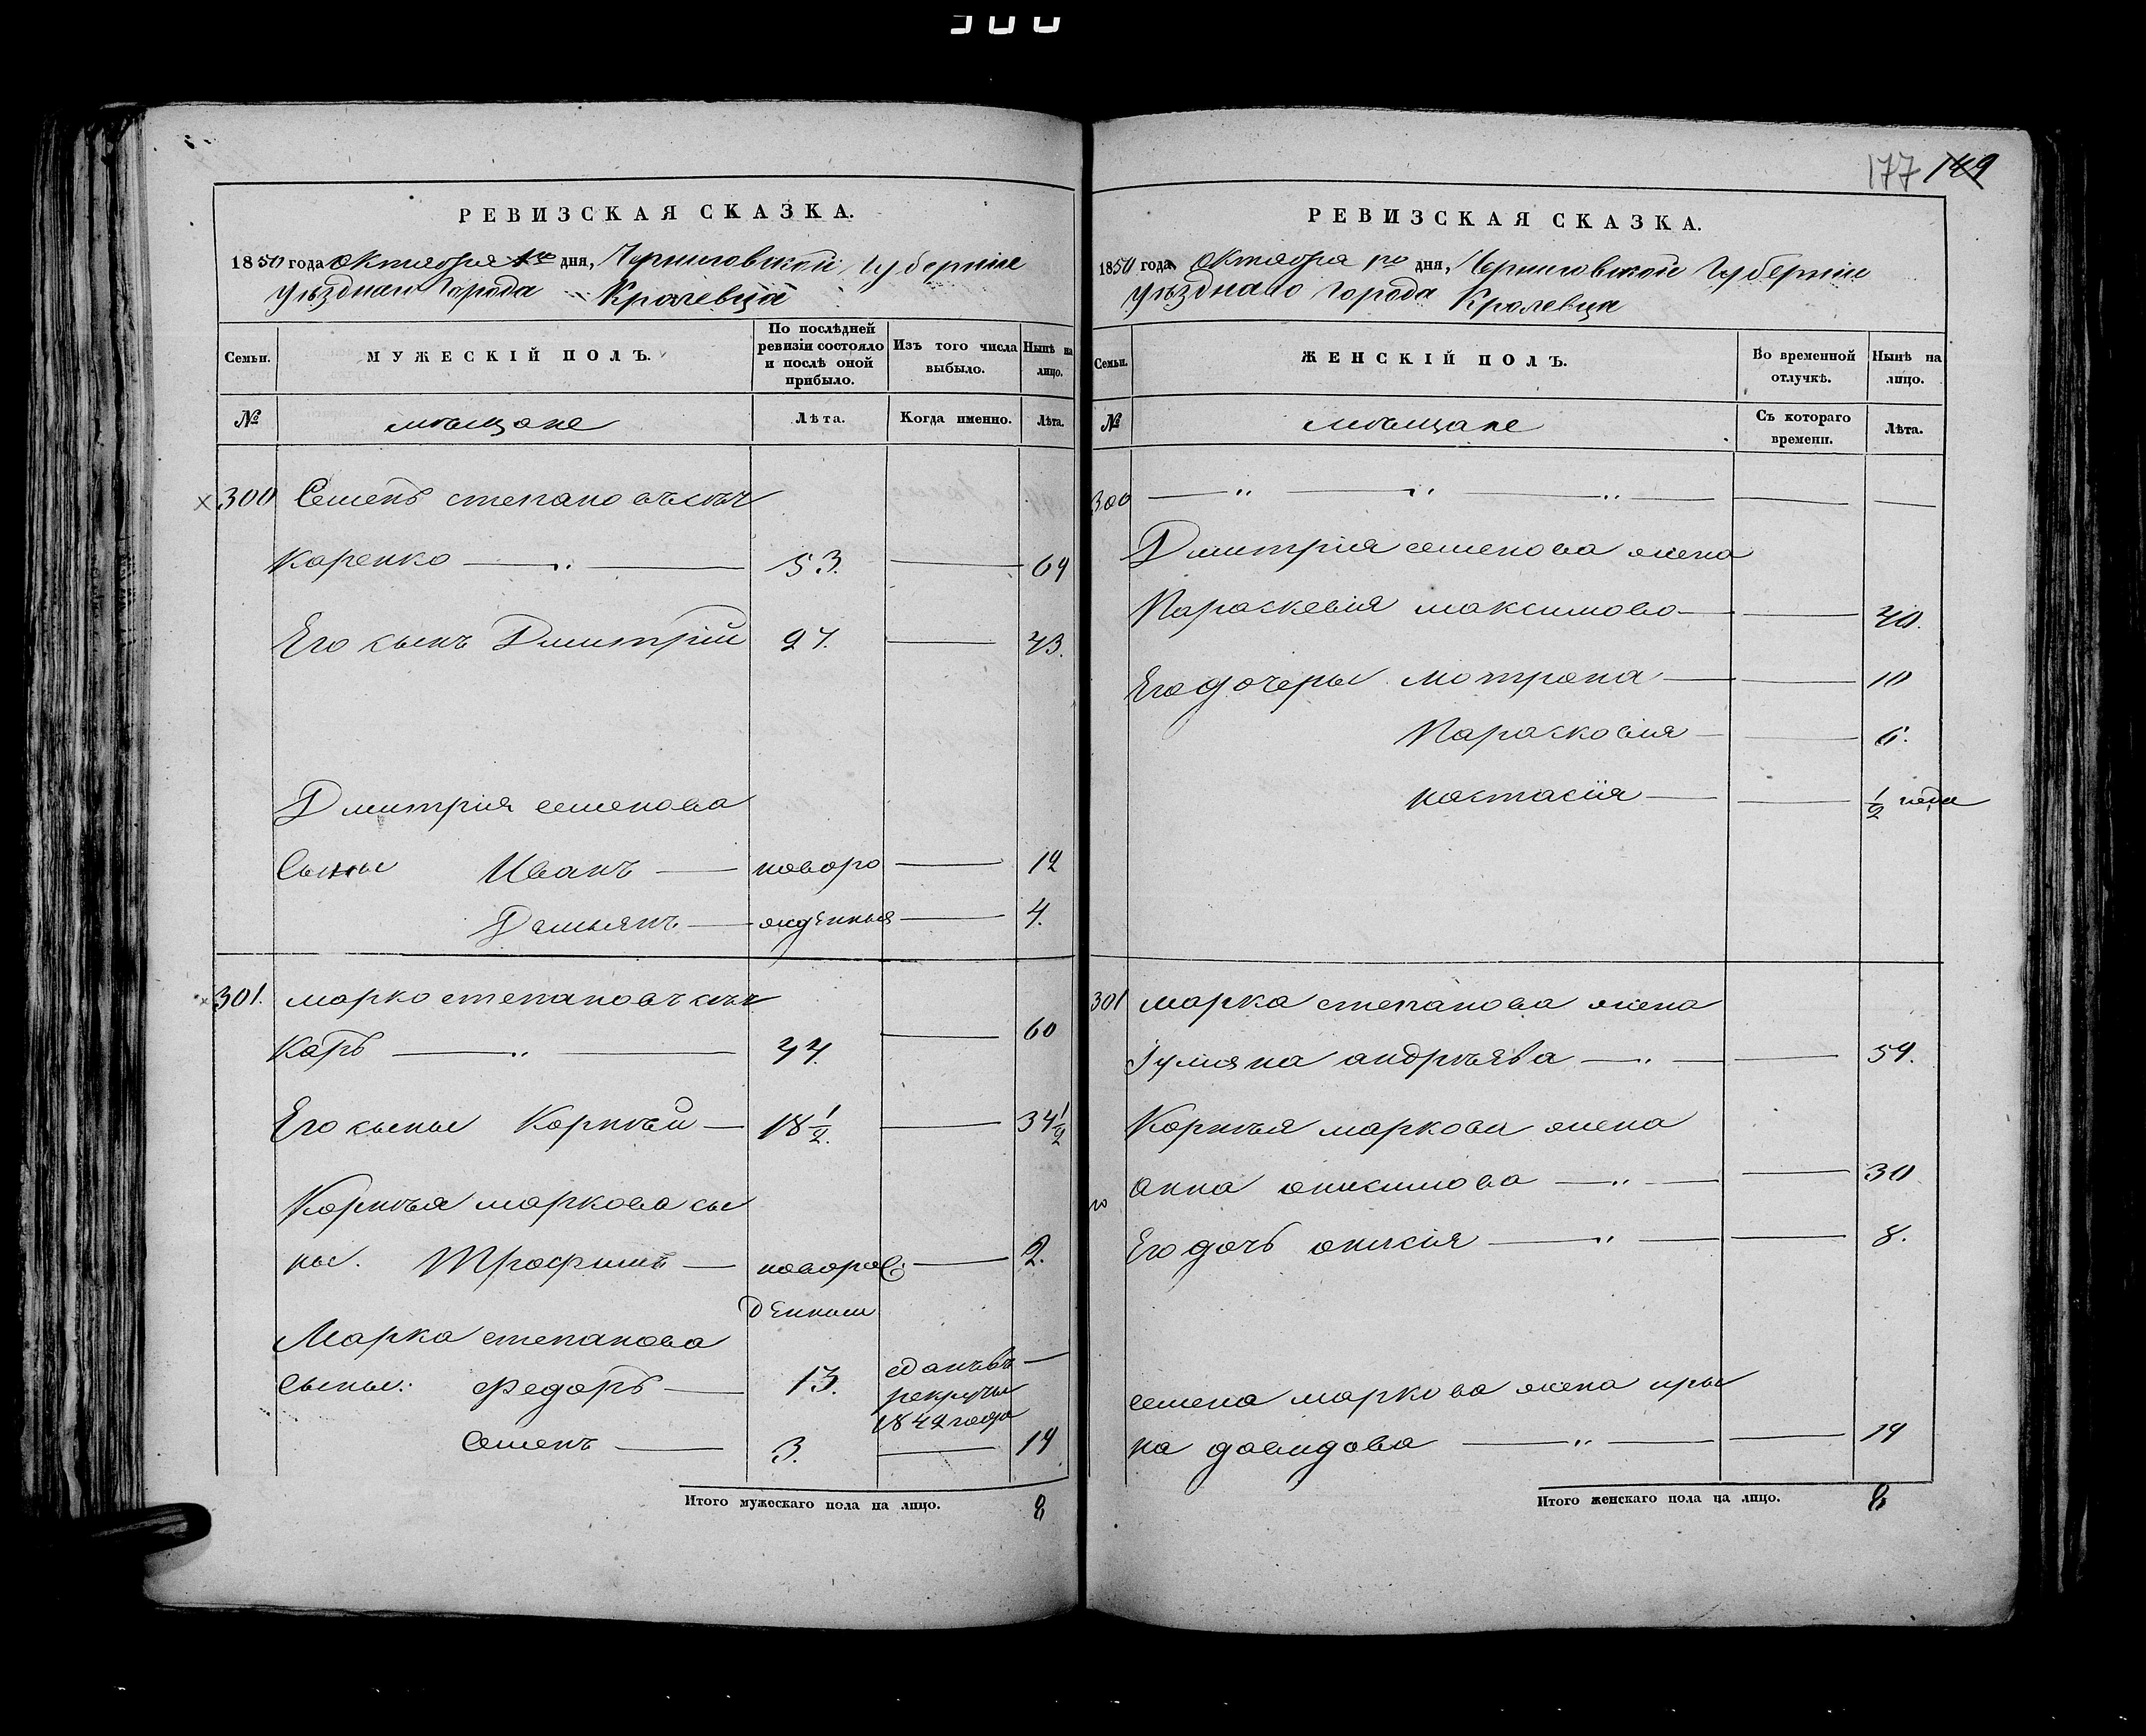 300
177 149
РЕВИЗСКАЯ СКАЗКА.
1850 года октября 1го дня, Черниговской Губернiи
Уѣзднаго Города Кролевца
Семьи.
МУЖЕСКІЙ ПОЛЪ.
По послѣдней ревизіи состояло и послѣ оной прибыло.
Изъ того числа выбыло.
Нынѣ на лицо.
№
мѣщане
Лѣта.
Когда именно.
Лѣта.
300 Семенъ степановъ сынъ
Каренко — 53. — 69
Его сынъ Дмитрій 27. — 43.
Дмитрія семенова
Сыны Иванъ — новоро — 12
Демьянъ — жденныя — 4.
301. марко степановъ сынъ
Карь — 44. — 60
Его сыны Корнѣй — 18 1/2. — 34 1/2
Корнѣя маркова сы
ны. Трофимъ — новорож — 2.
денныи
Марка степанова
Сыны: Федоръ — 13. сданъ въ —
рекруты
1842 года
Семенъ — 3. — 19
Итого мужескаго пола на лицо. 8
РЕВИЗСКАЯ СКАЗКА.
1850 года октября 1го дня, Черниговской Губернiи
Уѣзднаго Города Кролевца
Семьи.
ЖЕНСКІЙ ПОЛЪ.
Во временной отлучкѣ.
Нынѣ на лицо.
№
мѣщане
Съ котораго времени.
Лѣта.
300 — " — " — " —
Дмитрія семенова жена
Параскевія максимова — 40.
Его дочеры мотрона — 10
Парасковія — 6.
настасія — 1/2 года
301 марка степанова жена
Iулияна андрѣева — 59.
Корнѣя маркова жена
анна онисимова — 30
Его дочь онисія — 8.
семена маркова жена иры
на давидова — 19
Итого женскаго пола на лицо. 8